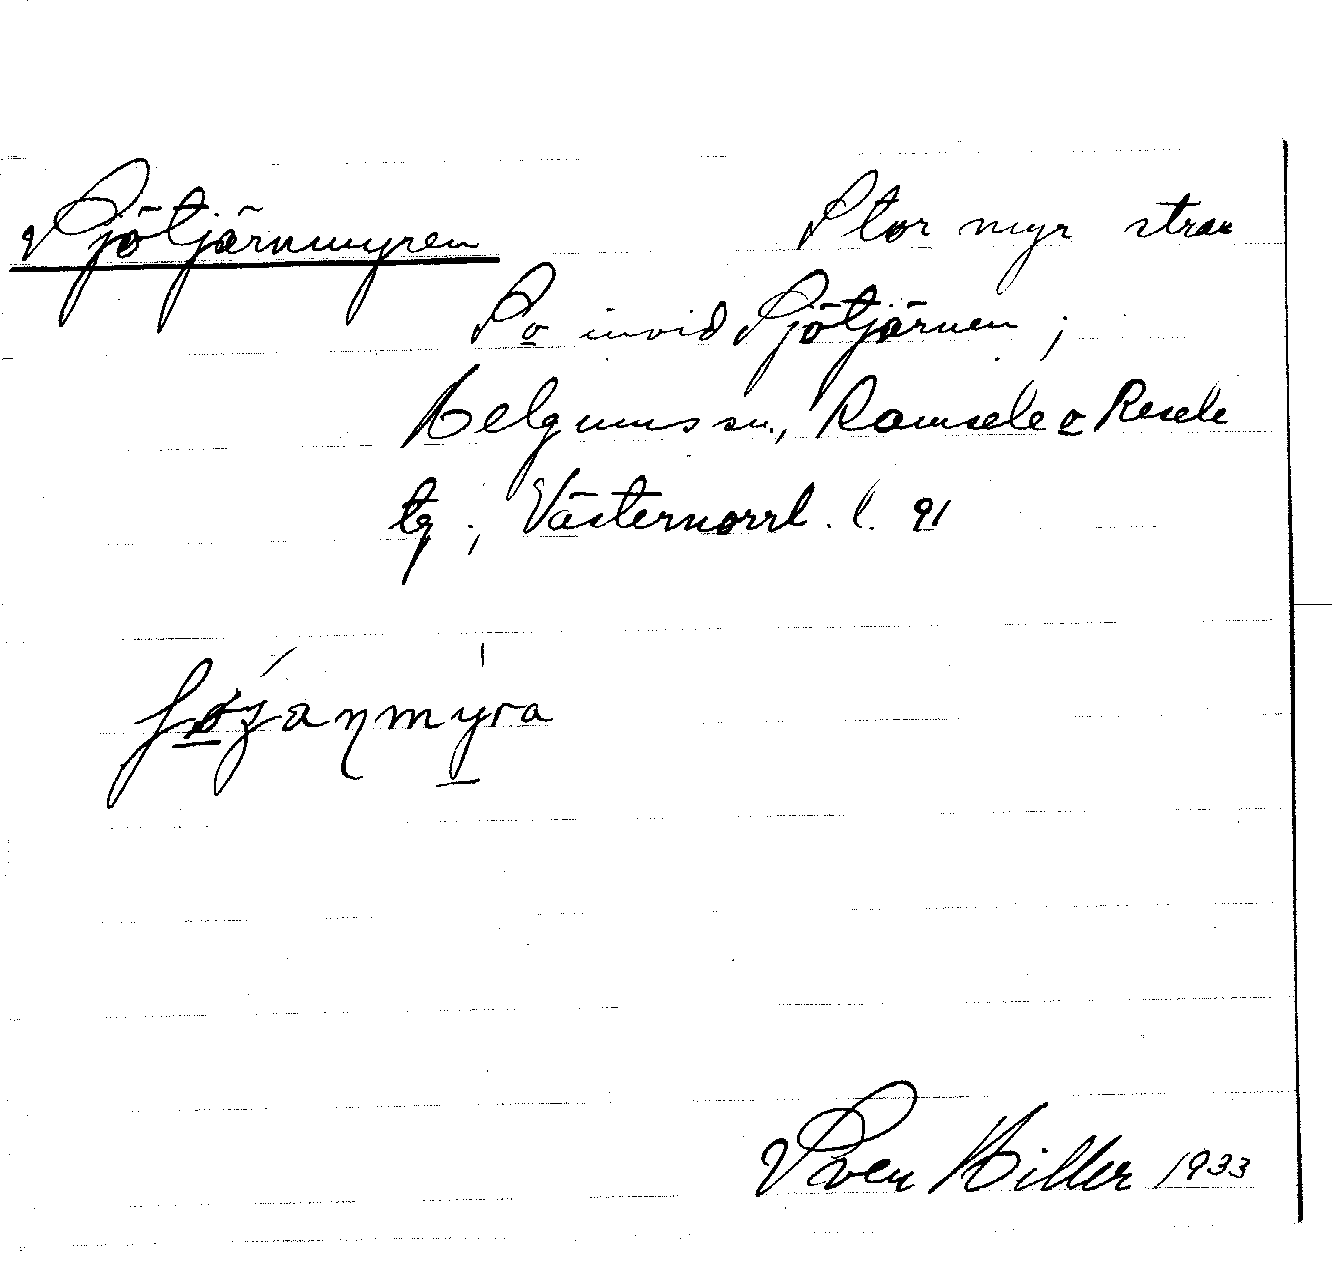 Sjötjärnmyren Stor myr strax
So invid Sjötjärnen ;
Helgumssn., Ramsele o Resele
tg ; Västernorrl. l. 91
Sven Hiller 1933